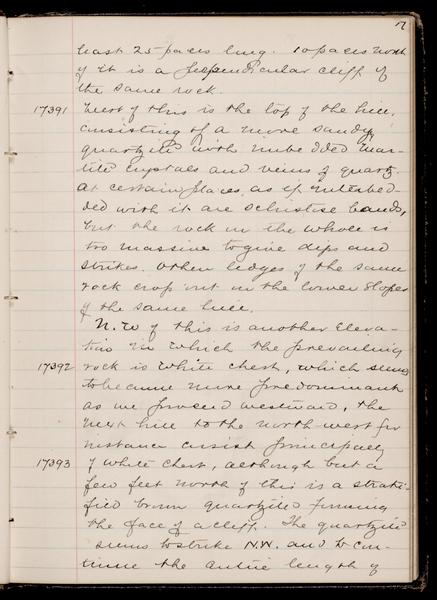 17
least 25 paces long. 10 paces north
of it is a perpendicular cliff of
the same rock.
17391 West of this is the top of the hill,
consisting of a more sandy
quartzite with imbedded mar-
tite crystals and veins of quartz.
At certain places, as if interbed-
ded with it are schistose bands,
but the rock in the whole is
too massive to give dips and
strikes. Other ledges of the same
rock crop out on the lower slopes
of the same hill.
N.W of this is another eleva-
tion in which the prevailing
17392 rock is white chert, which seems
to become more predominant
as we proceed westward, the
next hill to the north-west for
instance consist principally
17393 of white chert, although but a
few feet north of this is a strati-
fied brown quartzite forming
the face of a cliff. The quartzite
seems to strike N.W. and to con-
tinue the entire length of